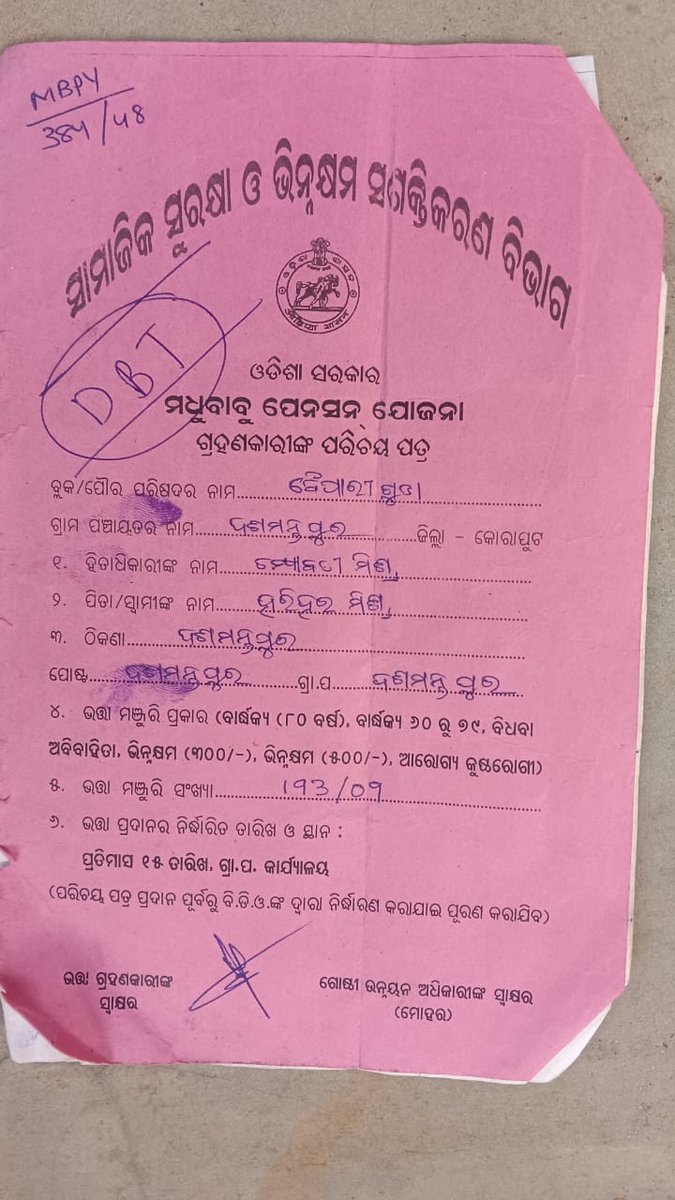 MBPY
384/48
ସାମାଜିକ ସୁରକ୍ଷା ଓ ଭିନ୍ନକ୍ଷମ ସଶକ୍ତିକରଣ ବିଭାଗ
DBT
ଓଡିଶା ସରକାର
ମଧୁବାବୁ ପେନସନ୍ ଯୋଜନା
ଗ୍ରହଣକାରୀଙ୍କ ପରିଚୟ ପତ୍ର
ବ୍ଲକ/ପୌର ପରିଷଦର ନାମ
ଗ୍ରାମ ପଞ୍ଚାୟତର ନାମ ଦଶମନ୍ତପୁର ଜିଲ୍ଲା - କୋରାପୁଟ
୧. ହିତାଧିକାରୀଙ୍କ ନାମ ମିଶ୍ର
୨. ପିତା/ସ୍ୱାମୀଙ୍କ ନାମ ହରିହର ମିଶ୍ର
୩. ଠିକଣା ଦଶମନ୍ତପୁର
ପୋଷ୍ଟ ଦଶମନ୍ତପୁର ଗ୍ରା.ପ ଦଶମନ୍ତପୁର
୪. ଭତ୍ତା ମଞ୍ଜୁରି ପ୍ରକାର (ବାର୍ଦ୍ଧକ୍ୟ (୮୦ ବର୍ଷ), ବାର୍ଦ୍ଧକ୍ୟ ୬୦ ରୁ ୭୯, ବିଧବା
ଅବିବାହିତା, ଭିନ୍ନକ୍ଷମ (୩୦୦/-), ଭିନ୍ନକ୍ଷମ (୫୦୦/-), ଆରୋଗ୍ୟ କୁଷ୍ଠରୋଗୀ)
୫. ଭତ୍ତା ମଞ୍ଜୁରି ସଂଖ୍ୟା 193/09
୬. ଭତ୍ତା ପ୍ରଦାନର ନିର୍ଦ୍ଧାରିତ ତାରିଖ ଓ ସ୍ଥାନ :
ପ୍ରତିମାସ ୧୫ ତାରିଖ, ଗ୍ରା.ପ. କାର୍ଯ୍ୟାଳୟ
(ପରିଚୟ ପତ୍ର ପ୍ରଦାନ ପୂର୍ବରୁ ବି.ଡି.ଓ.ଙ୍କ ଦ୍ୱାରା ନିର୍ଦ୍ଧାରଣ କରାଯାଇ ପୂରଣ କରାଯିବ)
ଭତ୍ତା ଗ୍ରହଣକାରୀଙ୍କ
ସ୍ୱାକ୍ଷର
ଗୋଷ୍ଠୀ ଉନ୍ନୟନ ଅଧିକାରୀଙ୍କ ସ୍ୱାକ୍ଷର
(ମୋହର)